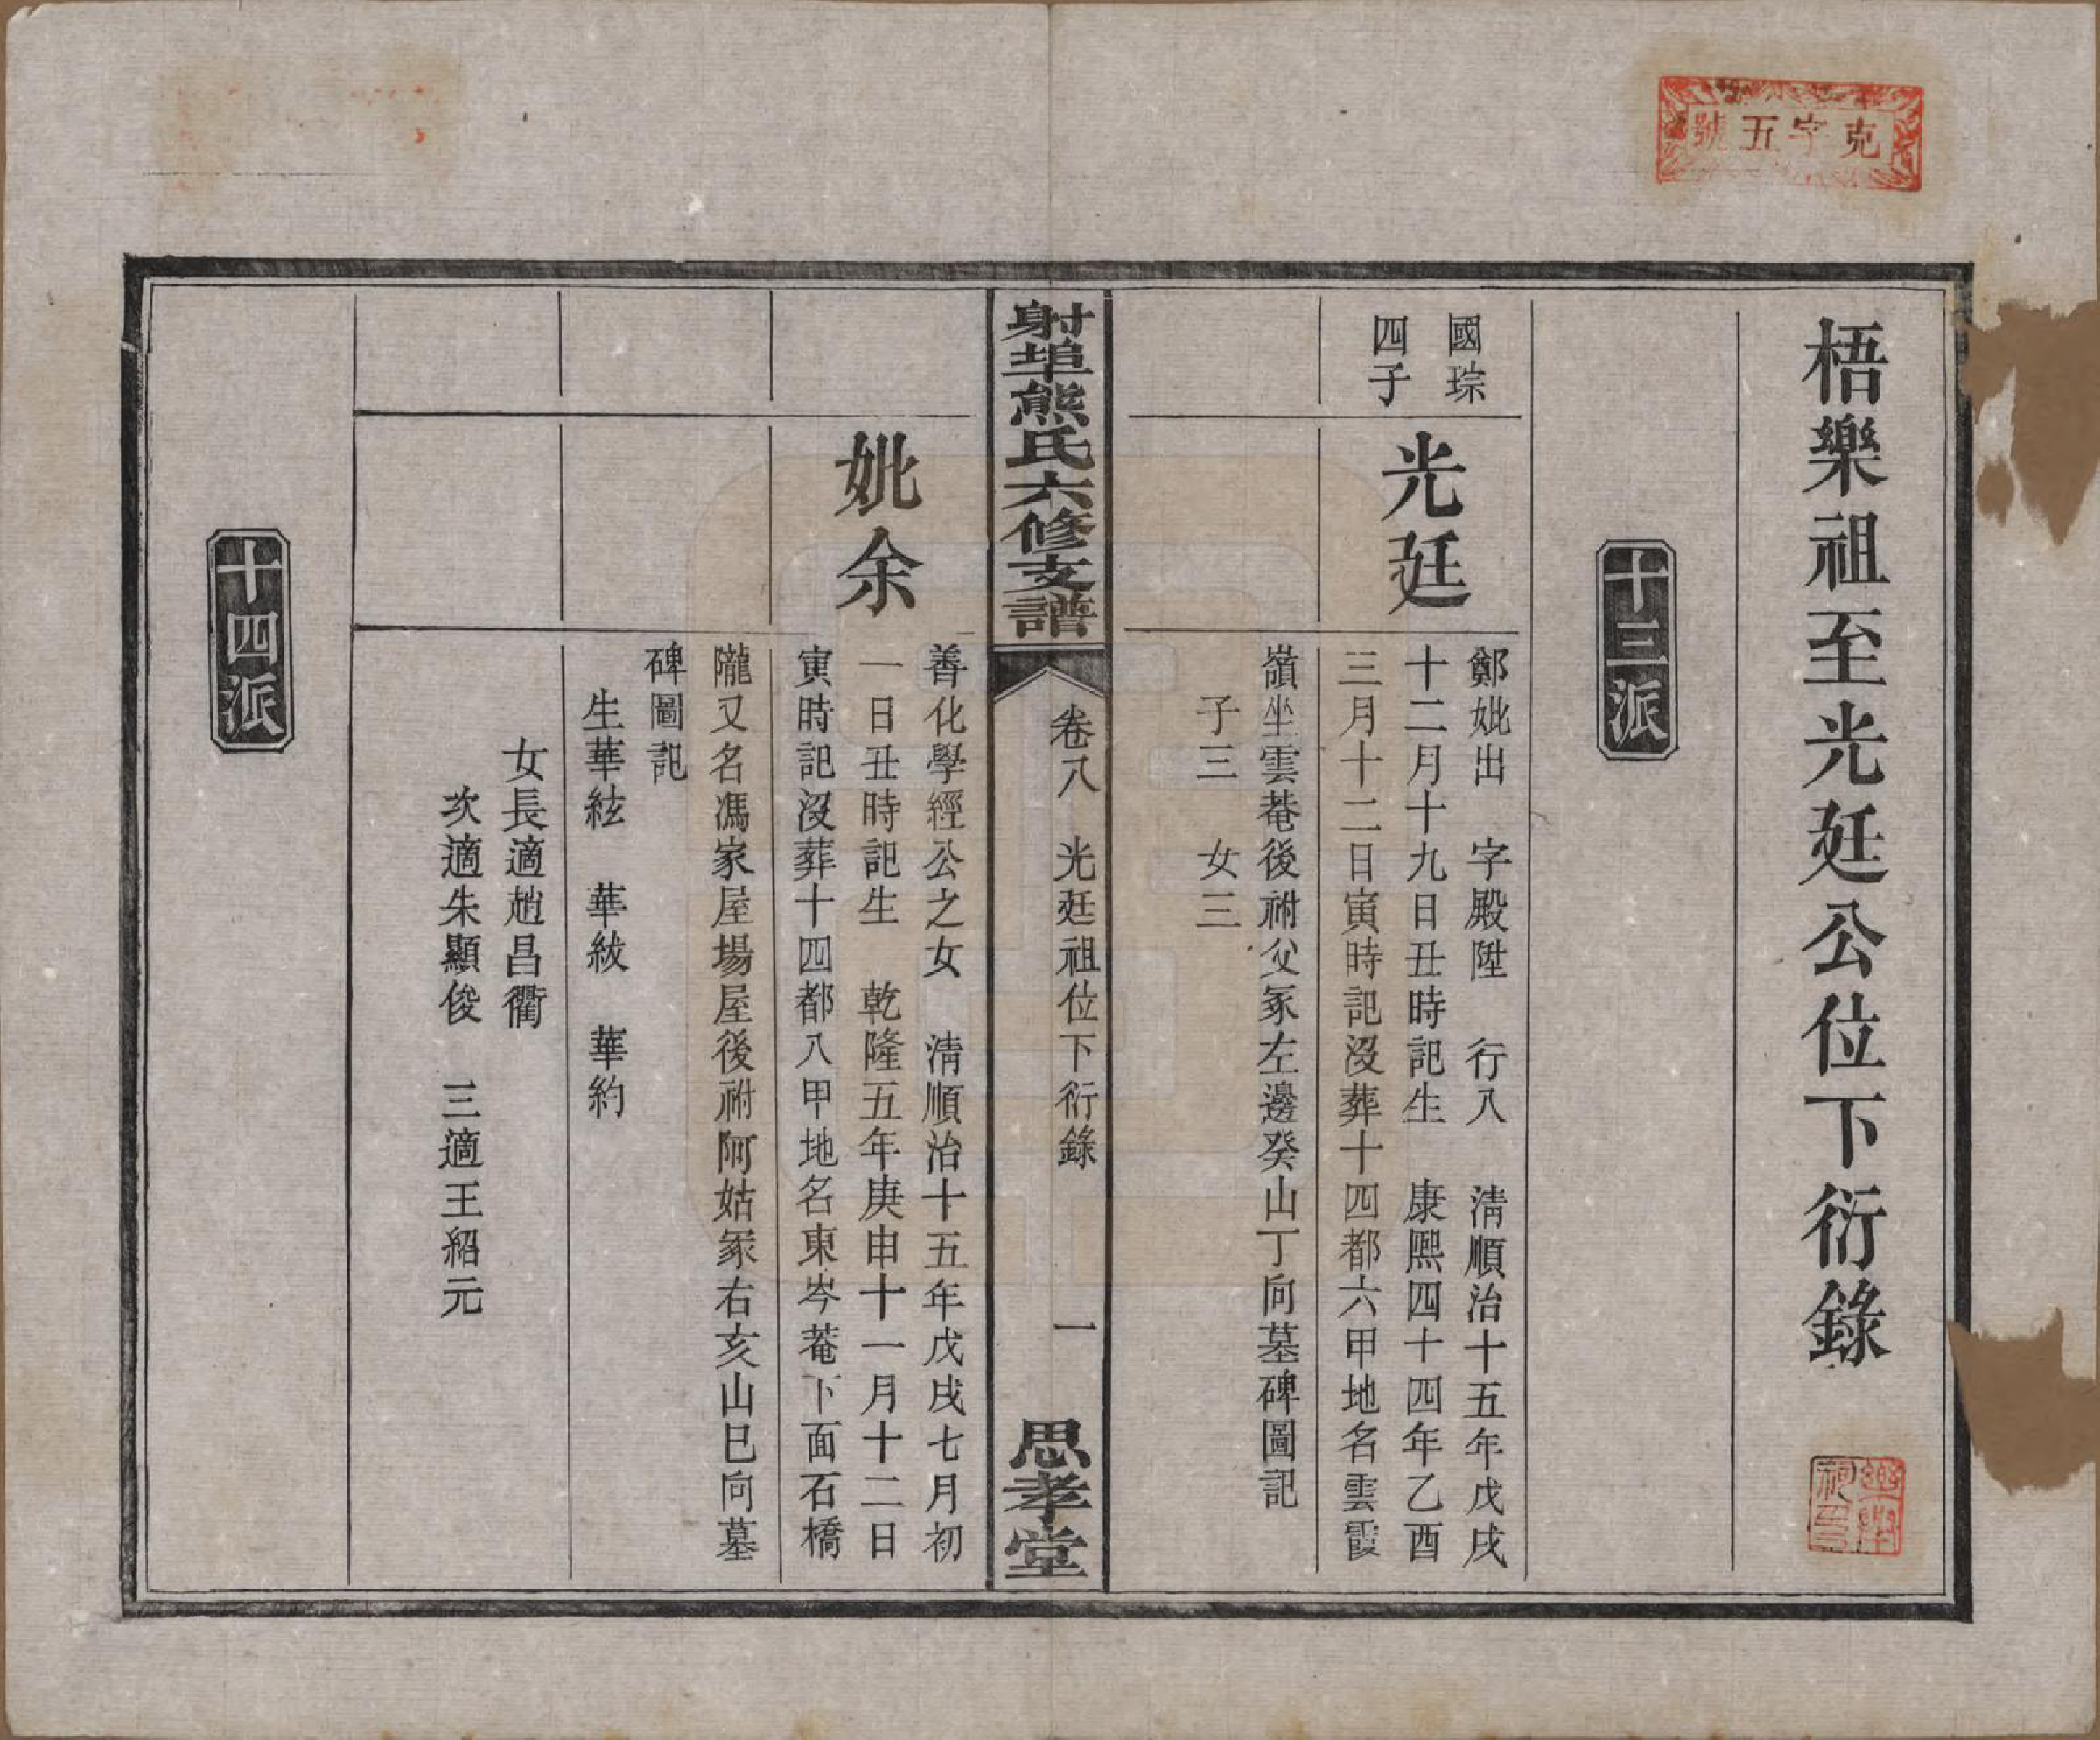 克字五號
梧樂祖至光廷公位下衍錄
十三派
國琮
四子
光廷
鄭妣出　字殿陞　行八　清順治十五年戊戌
十二月十九日丑時記生　康熙四十四年乙酉
三月十二日寅時記沒葬十四都六甲地名雲霞
嶺坐雲菴後祔父冢左邊癸山丁向墓碑圖記
子三　女三
射埠熊氏六修支譜
卷八　光廷祖位下衍錄
一
思孝堂
妣余
善化學經公之女　清順治十五年戊戌七月初
一日丑時記生　乾隆五年庚申十一月十二日
寅時記沒葬十四都八甲地名東岑菴下面石橋
隴又名馮家屋場屋後祔阿姑冢右亥山巳向墓
碑圖記
生華絃　華紱　華約
女長適趙昌衢
次適朱顯俊　三適王紹元
十四派